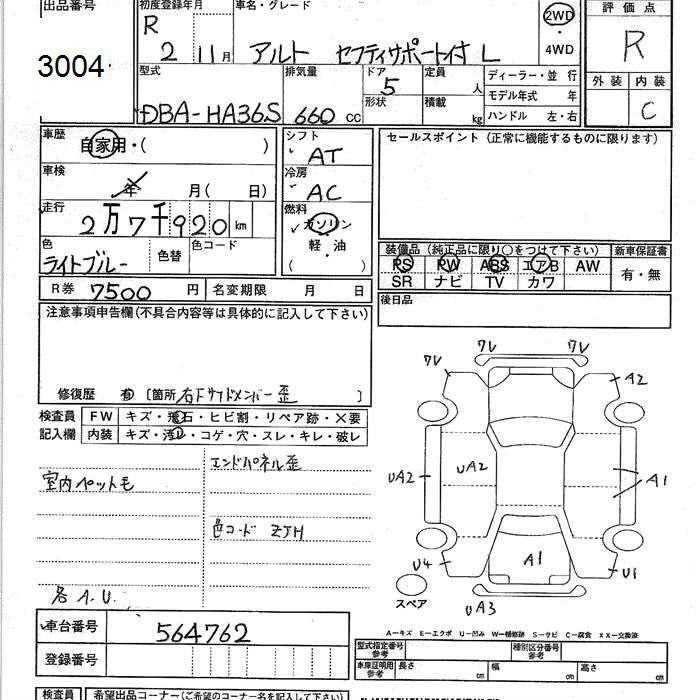 出品番号 初度登録年月 車名・グレード 評価点
3004 R 2 11月 アルト セフティサポート付 L 2WD・4WD R
型式 排気量 ドア 定員 ディーラー・並行 外装 内装
5 人 モデル年式 年
DBA-HA36S 660cc 形状 積載 kg ハンドル 左・右 C
車歴 自家用・( ) シフト AT セールスポイント (正常に機能するものに限ります)
車検 年 月(日) 冷房 AC
走行 2万7千920km 燃料 ガソリン
軽・油
( )
色 ライトブルー 色替 色コード
装備品 (純正品に限り○をつけて下さい) 新車保証書
PS PW ABS エアB AW 有・無
SR ナビ TV カワ
R券 7500円 名変期限 月 日 後日品
注意事項申告欄(不具合内容等は具体的に記入して下さい)
修復歴 有 〔箇所 右F サイドメンバー歪 〕
検査員 FW キズ・飛石・ヒビ割・リペア跡・×要
記入欄 内装 キズ・汚レ・コゲ・穴・スレ・キレ・破レ
室内ペット毛
エンドパネル歪
色コード ZJH
各 A.U.
7V 7V
7V A2
UA2 UA2 A1
A1
U4 U1
スペア UA3
車台番号 564762
登録番号
A-キズ E-エクボ U-凹み W-補修跡 S-サビ C-腐食 XX-交換済
型式指定番号 参考 種別区分番号 参考
車庫証明用 参考 長さ cm 幅 cm 高さ cm
検査員 希望出品コーナー(ご希望のコーナー名を記入して下さい)